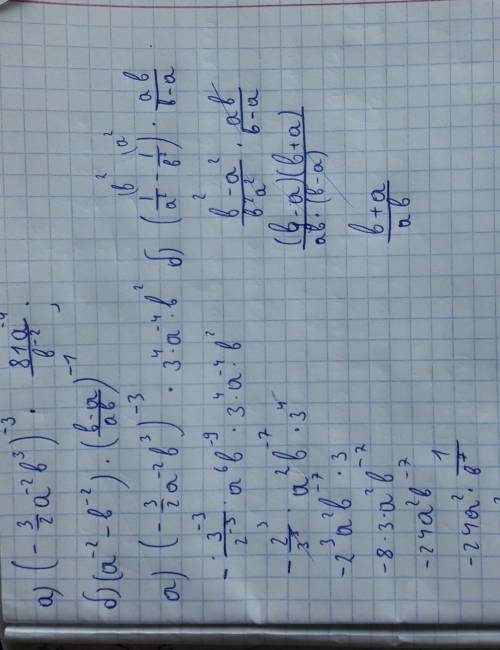 а) (-3/2 a^-2 b^3)^-3 · 81a^-4/b^-2 ;
б) (a^-2 - b^-2) · (b-a/ab)^-1
а) (-3/2 a^-2 b^3)^-3 · 3^4 · a^-4 · b^2
- 3^-3/2^-3 · a^6 b^-9 · 3^4 · a^-4 · b^2
- 2^3/3^3 · a^2 b^-7 · 3^4
-2^3 a^2 b^-7 · 3
-8 · 3 · a^2 b^-7
-24a^2 b^-7
-24a^2 · 1/b^7
б) (1/a^2 - 1/b^2) · ab/b-a
b^2 - a^2/b^2 a^2 · ab/b-a
(b-a)(b+a)/ab · (b-a)
b+a/ab